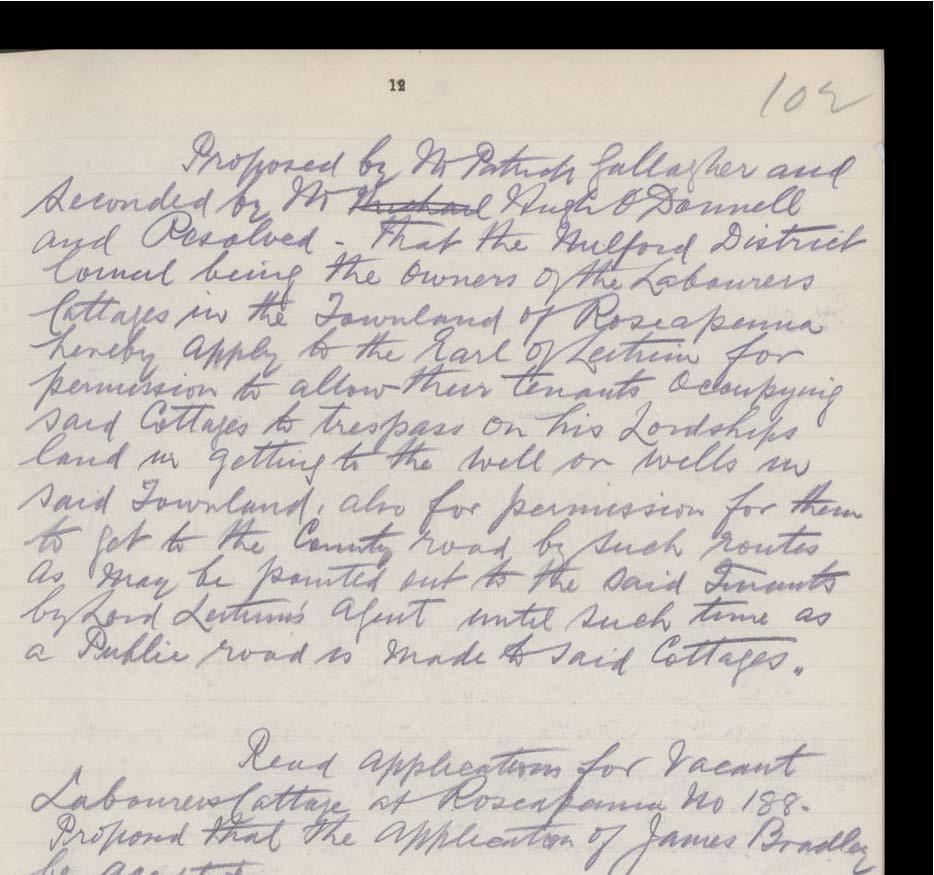 12
102
Proposed by Mr Patrick Gallagher and
Seconded by Mr Michael Hugh O'Donnell
and Resolved - That the Milford District
Council being the Owners of the Labourers
Cottages in the Townland of Roseapenna
hereby apply to the Earl of Leitrim for
permission to allow their tenants Occupying
said Cottages to trespass on his Lordships
land in getting to the well or wells in
said Townland, also for permission for them
to get to the County road by such routes
as may be pointed out to the said Tenants
by Lord Leitrim's Agent until such time as
a Public road is made to said Cottages.,
Read applications for Vacant
Labourers Cottage at Roseapenna No 188.
Proposed that the application of James Bradley
be accepted